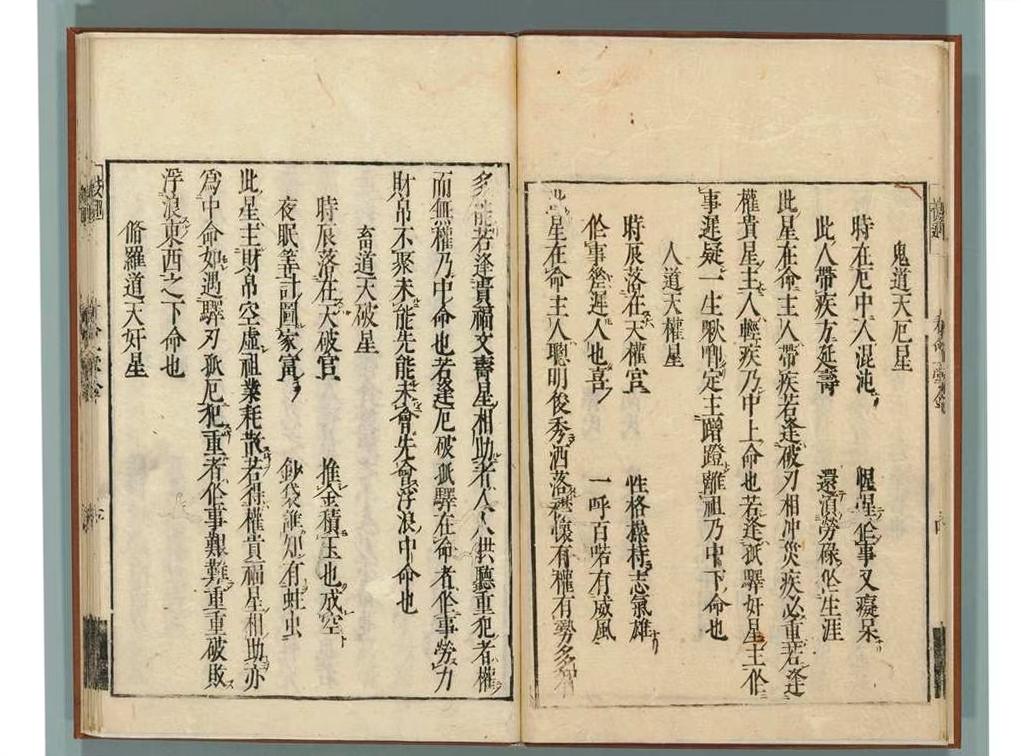 鬼道天厄星
時在厄中人混沌 惺惺作事又癡呆
此人帶疾方延壽 還須勞碌作生涯
此星在命主人帶疾若逢破刃相冲災疾必重若逢
權貴星主人輕疾乃中上命也若逢孤驛奸星主作
事遲疑一生啾唧定主蹭蹬離祖乃中下命也
人道天權星
時辰落在天權宮 性格操持志氣雄
作事 遲人也喜 一呼百喏有威風
此星在命主人聰明俊秀洒落 懷有權有勢多
多能若逢貴福文壽星相助者人人拱聽重犯者權
而無權乃中命也若逢厄破孤驛在命者作事勞力
財帛不聚未能先能未會先會浮浪中命也
畜道天破星
時辰落在天破宮 堆金積玉也成空
夜眠筭計圖家富 鈔袋誰知有蛀虫
此星主財帛空虛祖業耗散若得權貴福星相助亦
爲中命如遇驛刃孤厄犯重者作事艱難重重破敗
浮浪東西之下命也
脩羅道天奸星